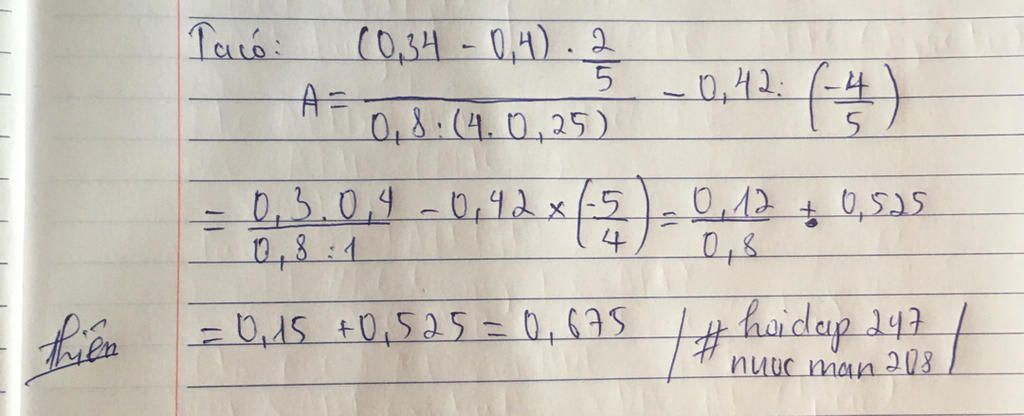 Ta có: A = \frac{(0,34 - 0,4) \cdot \frac{2}{5}}{0,8 : (4 . 0,25)} - 0,42 : \left(\frac{-4}{5}\right)
= \frac{0,3 . 0,4}{0,8 : 1} - 0,42 × \left(\frac{-5}{4}\right) = \frac{0,12}{0,8} + 0,525
= 0,15 + 0,525 = 0,675
/ # hoidap 247 /
nuoc man 208
thiên